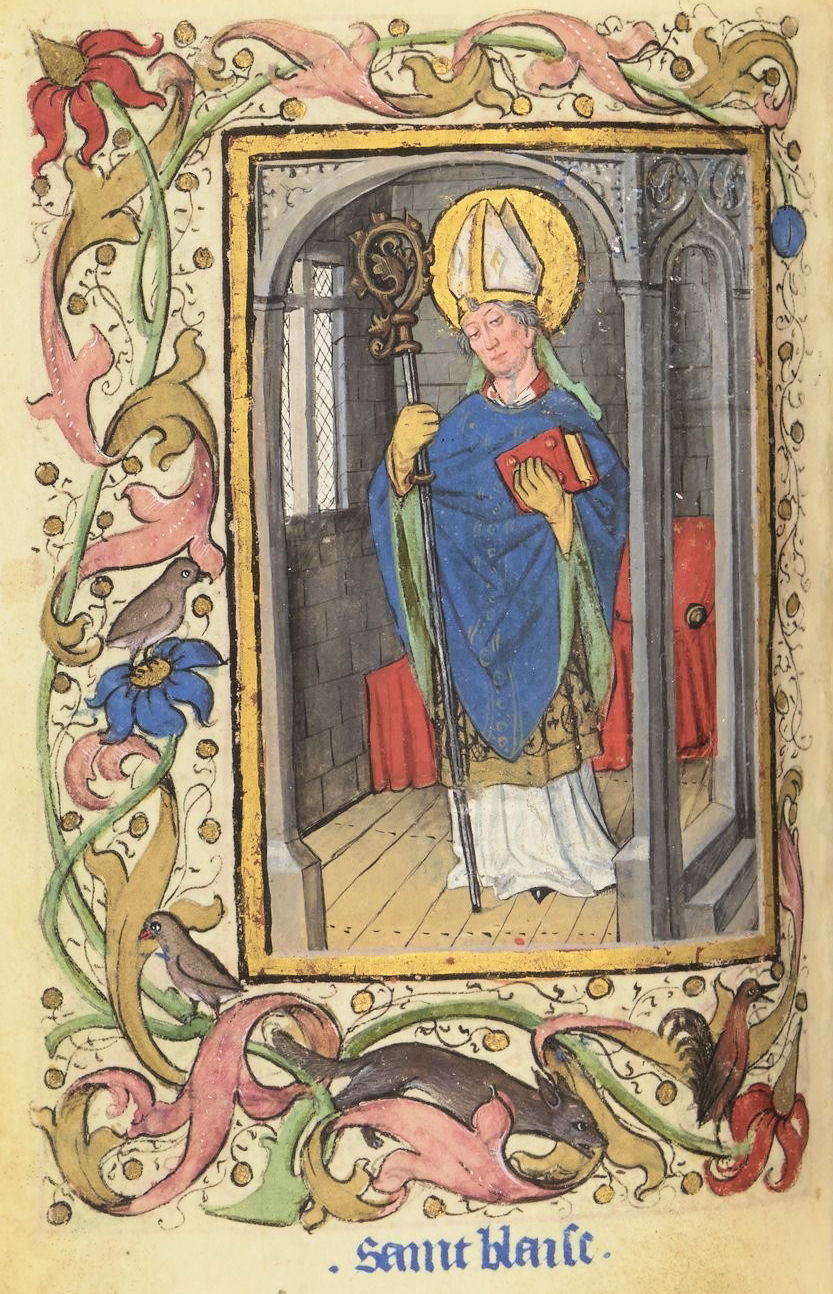 . saint blaise.